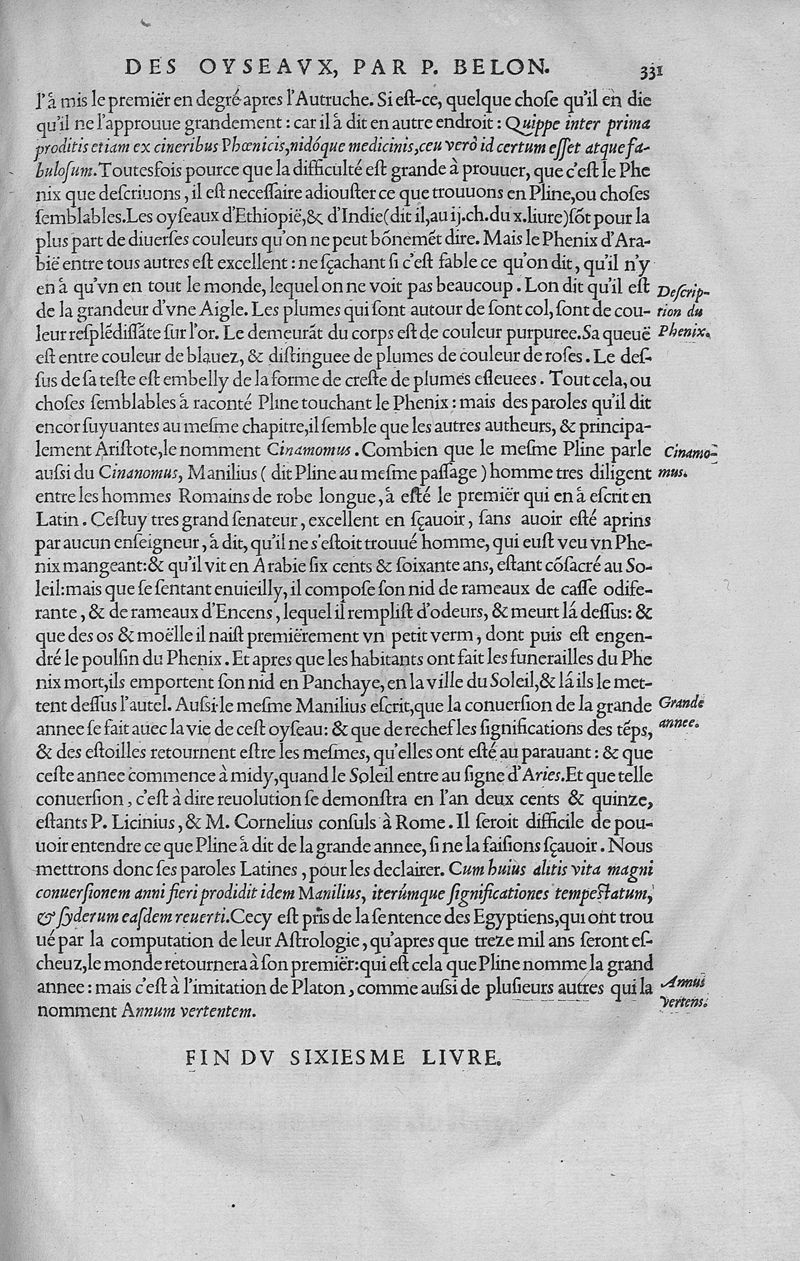 DES OYSEAVX, PAR P. BELON. 331
l'à mis le premiër en degré apres l'Autruche. Si eſt-ce, quelque choſe qu'il en die
qu'il ne l'approuue grandement : car il à dit en autre endroit : Quippe inter prima
proditis etiam ex cineribus Phœnicis, nidóque medicinis, ceu verò id certum eſſet atque fa-
buloſum. Toutesfois pource que la difficulté eſt grande à prouuer, que c'eſt le Phe
nix que deſcriuons, il eſt neceſſaire adiouſter ce que trouuons en Pline, ou choſes
ſemblables. Les oyſeaux d'Ethiopië, & d'Indie (dit il, au ij. ch. du x. liure) ſõt pour la
plus part de diuerſes couleurs qu'on ne peut bõnemét dire. Mais le Phenix d'Ara-
bië entre tous autres eſt excellent : ne ſçachant ſi c'eſt fable ce qu'on dit, qu'il n'y
en à qu'vn en tout le monde, lequel on ne voit pas beaucoup. Lon dit qu'il eſt
Deſcrip-
de la grandeur d'vne Aigle. Les plumes qui ſont autour de ſont col, ſont de cou-
tion du
leur reſplẽdiſſãte ſur l'or. Le demeurãt du corps eſt de couleur purpuree. Sa queuë
Phenix.
eſt entre couleur de blauez, & diſtinguee de plumes de couleur de roſes. Le deſ-
ſus de ſa teſte eſt embelly de la forme de creſte de plumes eſleuees. Tout cela, ou
choſes ſemblables à raconté Pline touchant le Phenix : mais des paroles qu'il dit
encor ſuyuantes au meſme chapitre, il ſemble que les autres autheurs, & principa-
lement Ariſtote, le nomment Cinamomus. Combien que le meſme Pline parle
Cinamo-
auſsi du Cinanomus, Manilius ( dit Pline au meſme paſſage ) homme tres diligent
mus.
entre les hommes Romains de robe longue, à eſté le premiër qui en à eſcrit en
Latin. Ceſtuy tres grand ſenateur, excellent en ſçauoir, ſans auoir eſté aprins
par aucun enſeigneur, à dit, qu'il ne s'eſtoit trouué homme, qui euſt veu vn Phe-
nix mangeant: & qu'il vit en Arabie ſix cents & ſoixante ans, eſtant cõſacré au So-
leil: mais que ſe ſentant enuieilly, il compoſe ſon nid de rameaux de caſſe odife-
rante, & de rameaux d'Encens, lequel il rempliſt d'odeurs, & meurt lá deſſus: &
que des os & moëlle il naiſt premiërement vn petit verm, dont puis eſt engen-
dré le poulſin du Phenix. Et apres que les habitants ont fait les funerailles du Phe
nix mort, ils emportent ſon nid en Panchaye, en la ville du Soleil, & lá ils le met-
tent deſſus l'autel. Auſsi le meſme Manilius eſcrit, que la conuerſion de la grande
Grande
annee ſe fait auec la vie de ceſt oyſeau: & que de rechef les ſignifications des tẽps,
annee.
& des eſtoilles retournent eſtre les meſmes, qu'elles ont eſté au parauant : & que
ceſte annee commence à midy, quand le Soleil entre au ſigne d'Aries. Et que telle
conuerſion, c'eſt à dire reuolution ſe demonſtra en l'an deux cents & quinze,
eſtants P. Licinius, & M. Cornelius conſuls à Rome. Il ſeroit difficile de pou-
uoir entendre ce que Pline à dit de la grande annee, ſi ne la faiſions ſçauoir. Nous
mettrons donc ſes paroles Latines, pour les declairer. Cum huius alitis vita magni
conuerſionem anni fieri prodidit idem Manilius, iterúmque ſignificationes tempeſtatum,
& ſyderum eaſdem reuerti. Cecy eſt pris de la ſentence des Egyptiens, qui ont trou
ué par la computation de leur Aſtrologie, qu'apres que treze mil ans ſeront eſ-
cheuz, le monde retournera à ſon premiër: qui eſt cela que Pline nomme la grand
annee : mais c'eſt à l'imitation de Platon, comme auſsi de pluſieurs autres qui la
Annui
nomment Annum vertentem.
Vertens.
FIN DV SIXIESME LIVRE.